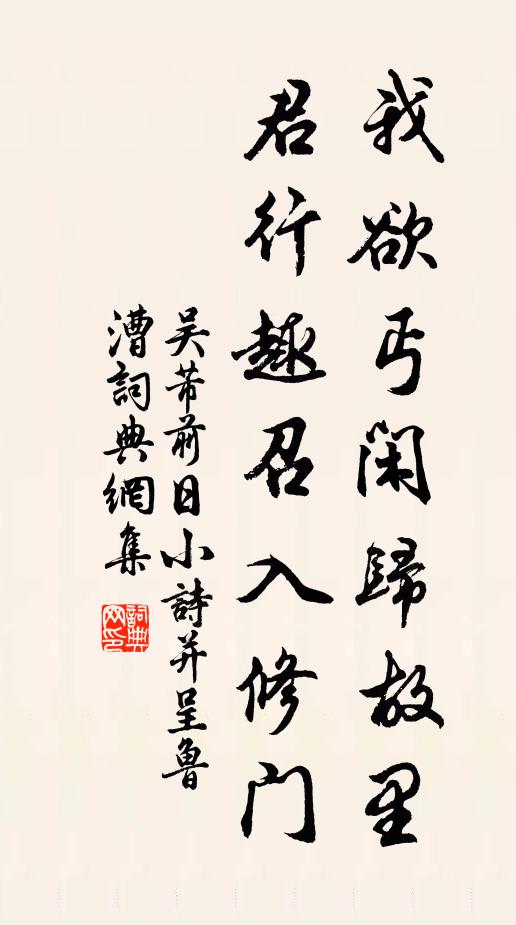 我欲丐閑歸故里
君行趣召入修门
吴芾前日小詩并呈魯
漕詞典網集
詞典网印